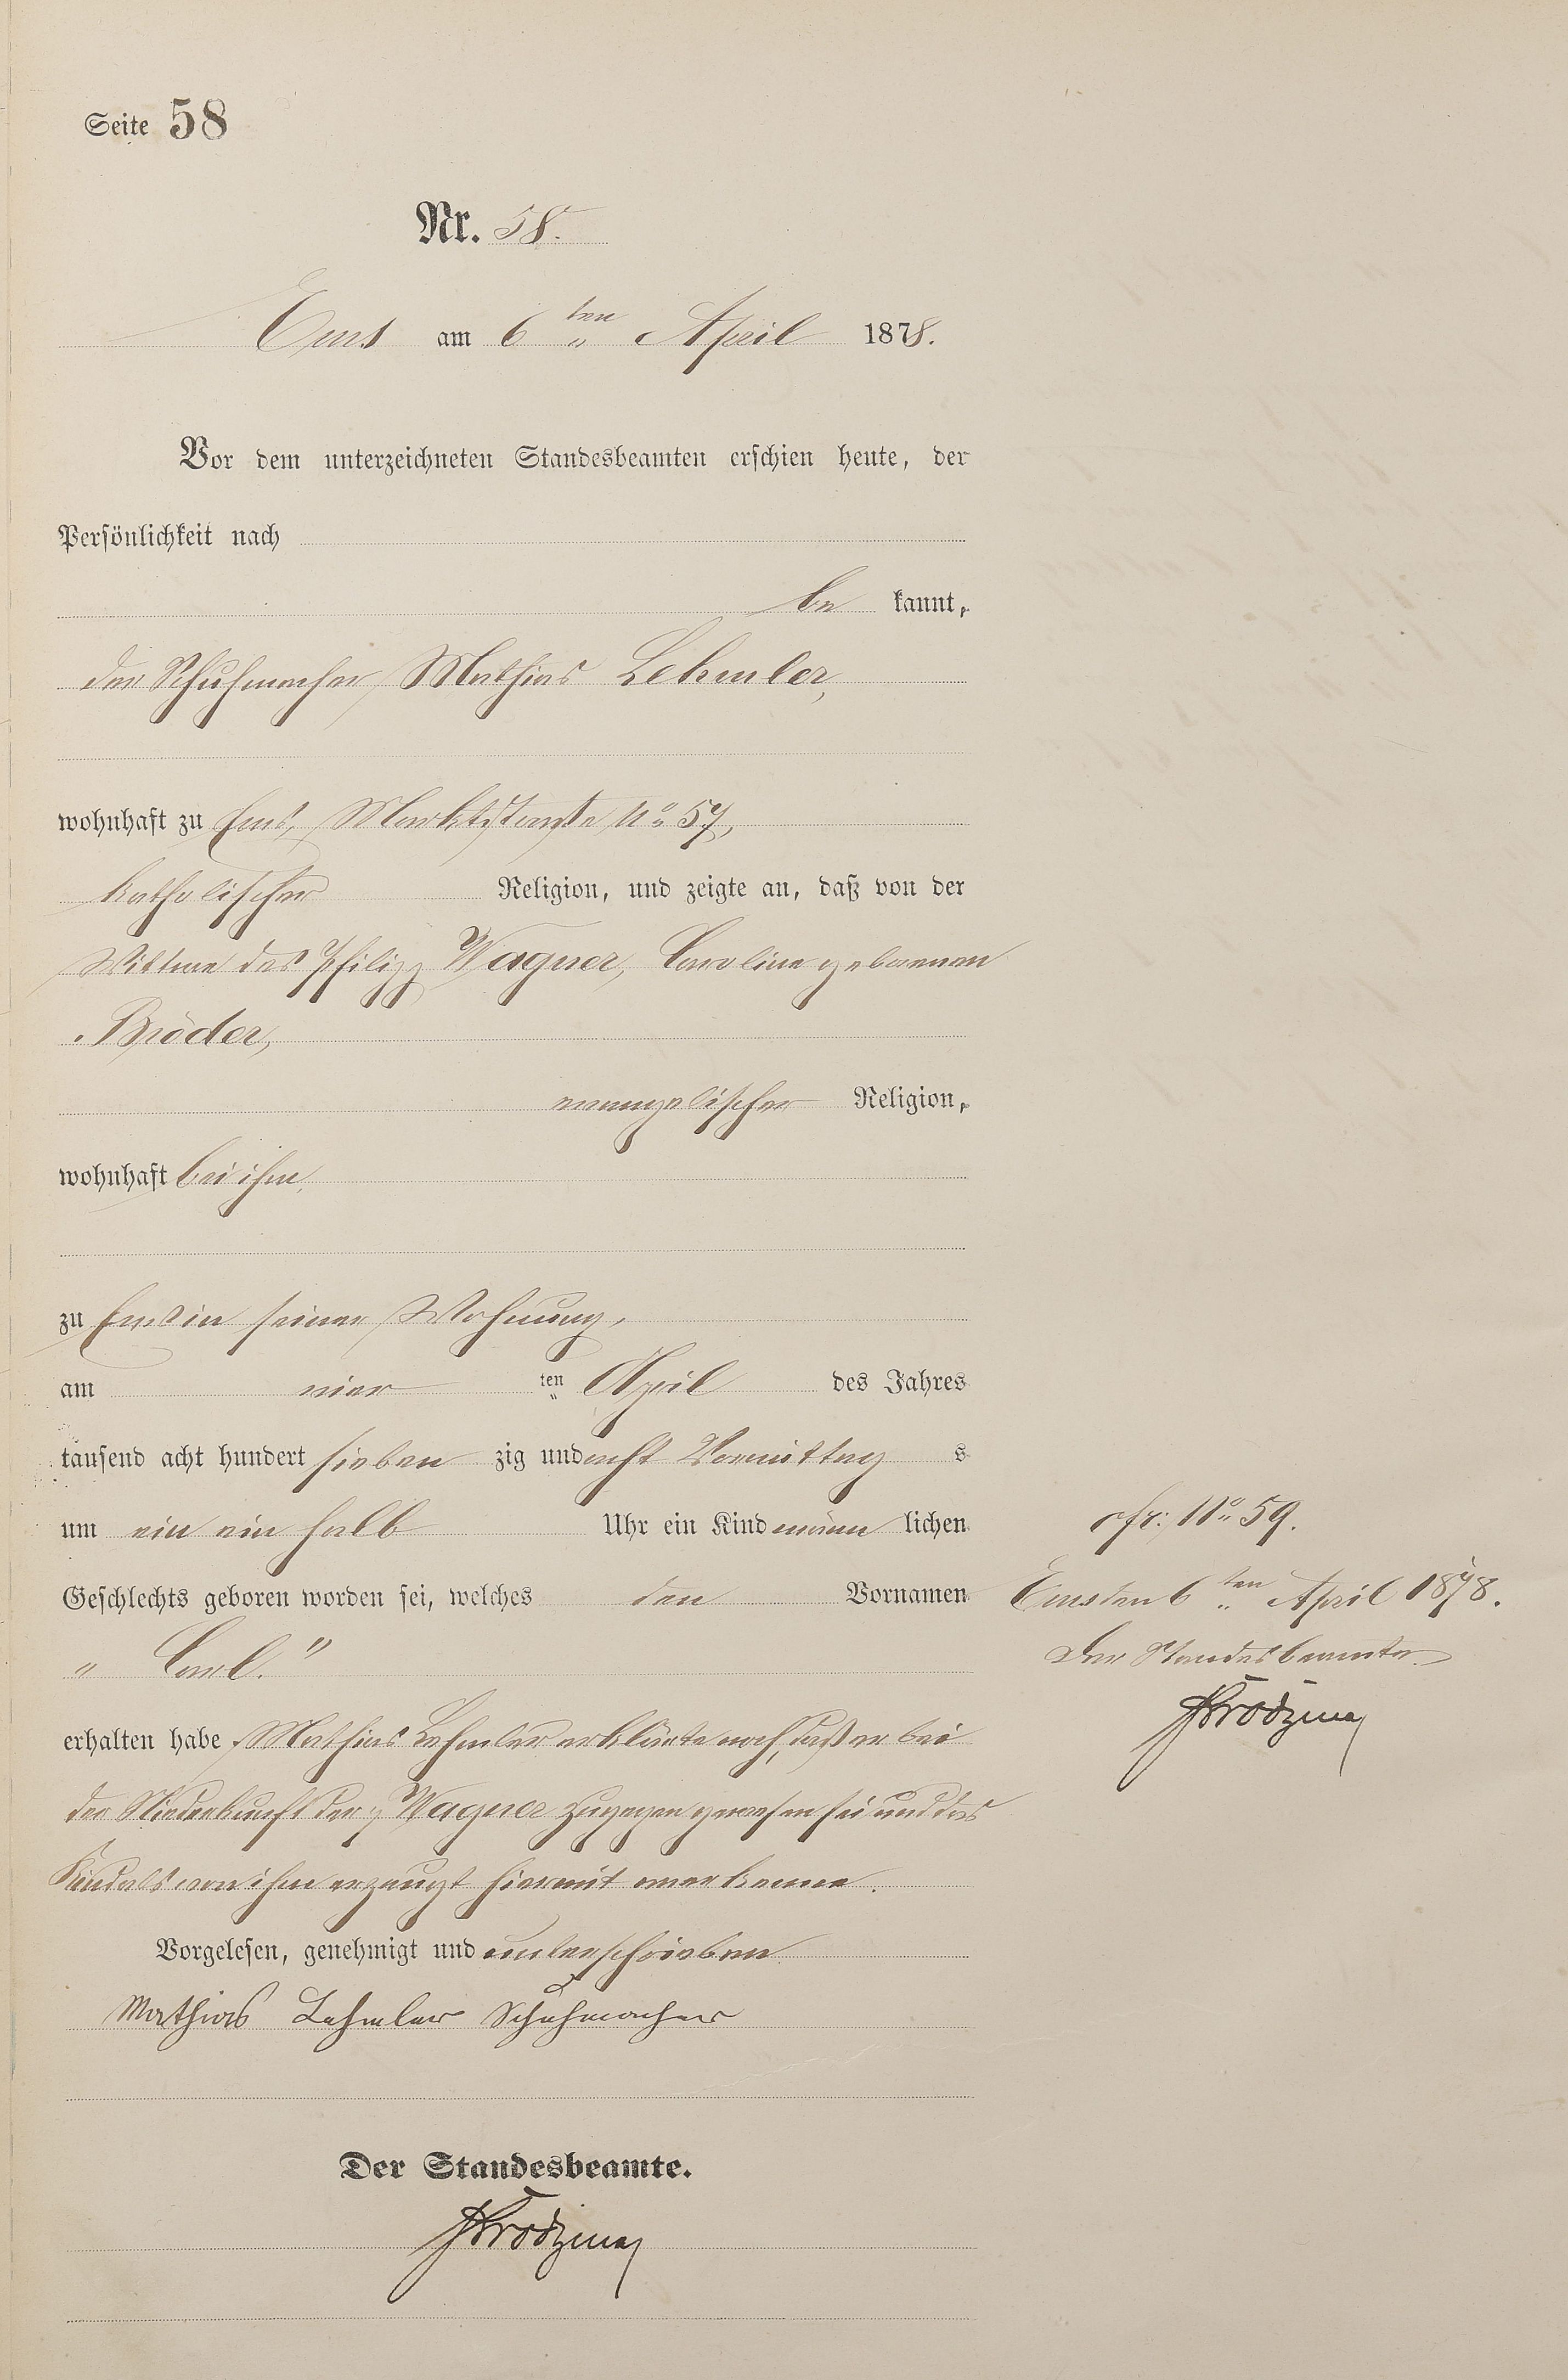 Seite 58
Nr. 58.
Ems am 6ten April 1878.
Vor dem unterzeichneten Standesbeamten erschien heute, der
Persönlichkeit nach
be kannt,
der Schuhmacher Mathias Lehmler,
wohnhaft zu Ems, Marktstraße No 57,
katholischer Religion, und zeigte an, daß von der
Wittwe des Philipp Wagner, Caroline geborenen
Bröder,
evangelischer Religion,
wohnhaft bei ihm,
zu Ems in seiner Wohnung,
am vier ten April des Jahres
tausend acht hundert sieben zig und acht Vormittag s
um ein ein halb Uhr ein Kind männ lichen
Geschlechts geboren worden sei, welches den Vornamen
„ Carl."
erhalten habe. Mathias Lehmler erklärte noch, daß er bei
der Niederkunft der Wagner zugegen gewesen sei und das
Kind als von ihm erzeugt hiermit anerkenne.
Vorgelesen, genehmigt und unterschrieben
Mathias Lehmler Schuhmacher
Der Standesbeamte.
cfr: No 59.
Ems den 6ten April 1878.
Der Standesbeamte